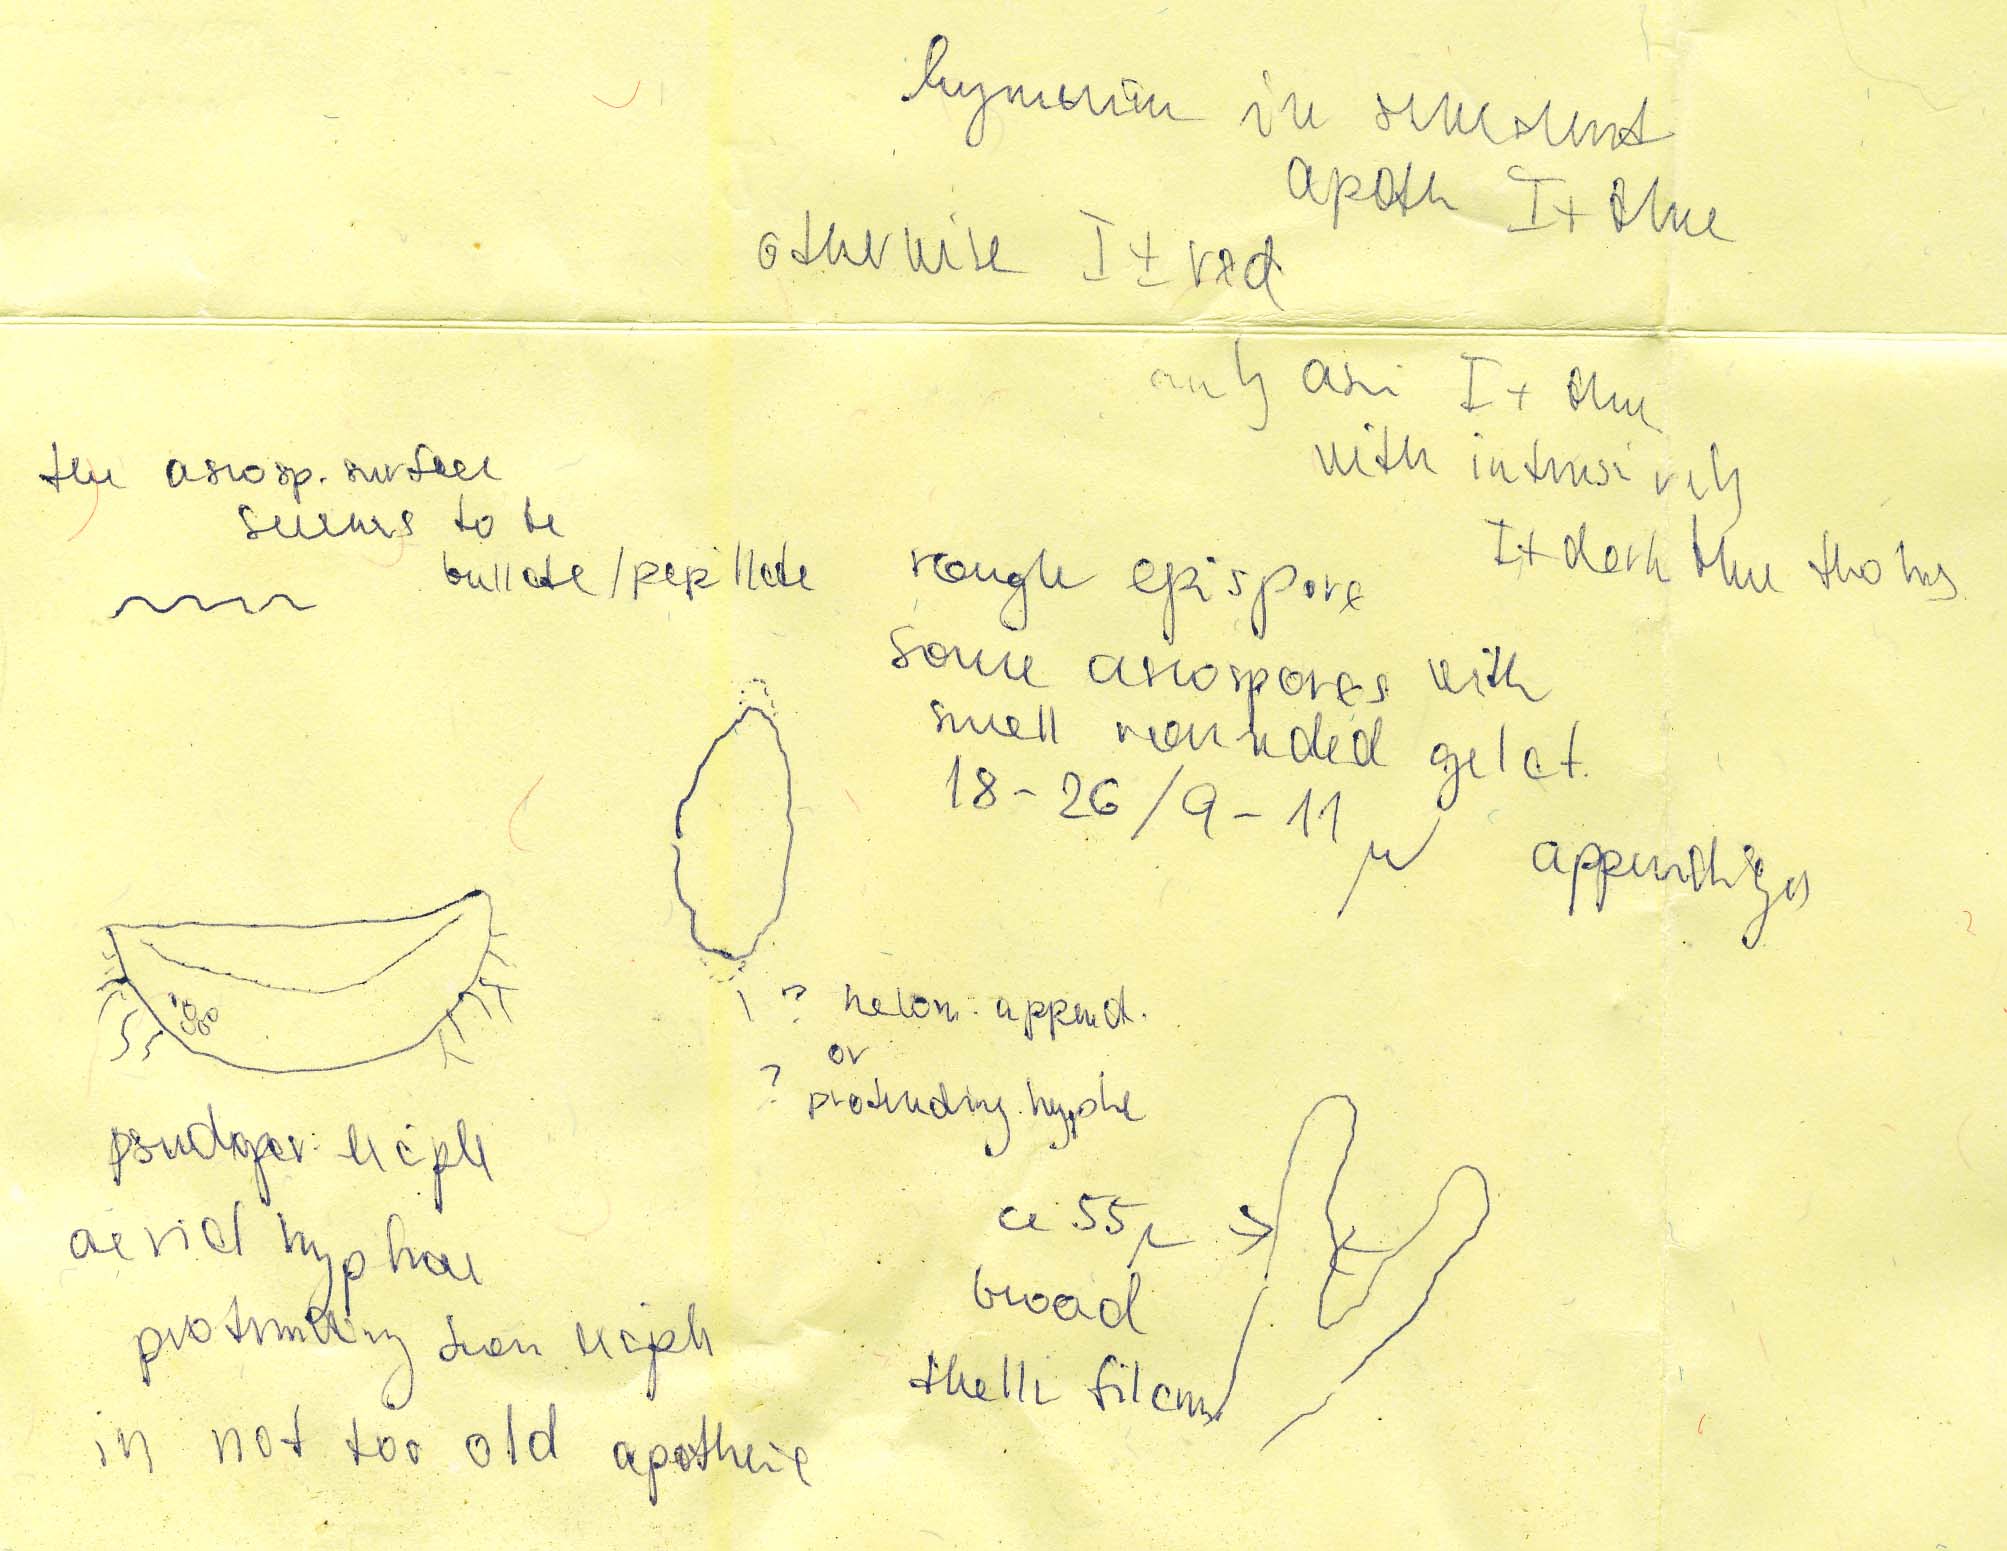 hymenium in senescent
apoth I+ blue
otherwise I± red
only asci I+ blue
with intensively
I+ dark blue tholus
the ascosp. surface
seems to be
bullate/papillate
rough epispore
some ascospores with
small rounded gelat.
18-26/9-11 µ
appendages
? helom. append.
or
? protruding hyphae
pseudopar. exciple
aerial hyphae
protruding from exciple
in not too old apothecia
ca 55µ
broad
thalli filam